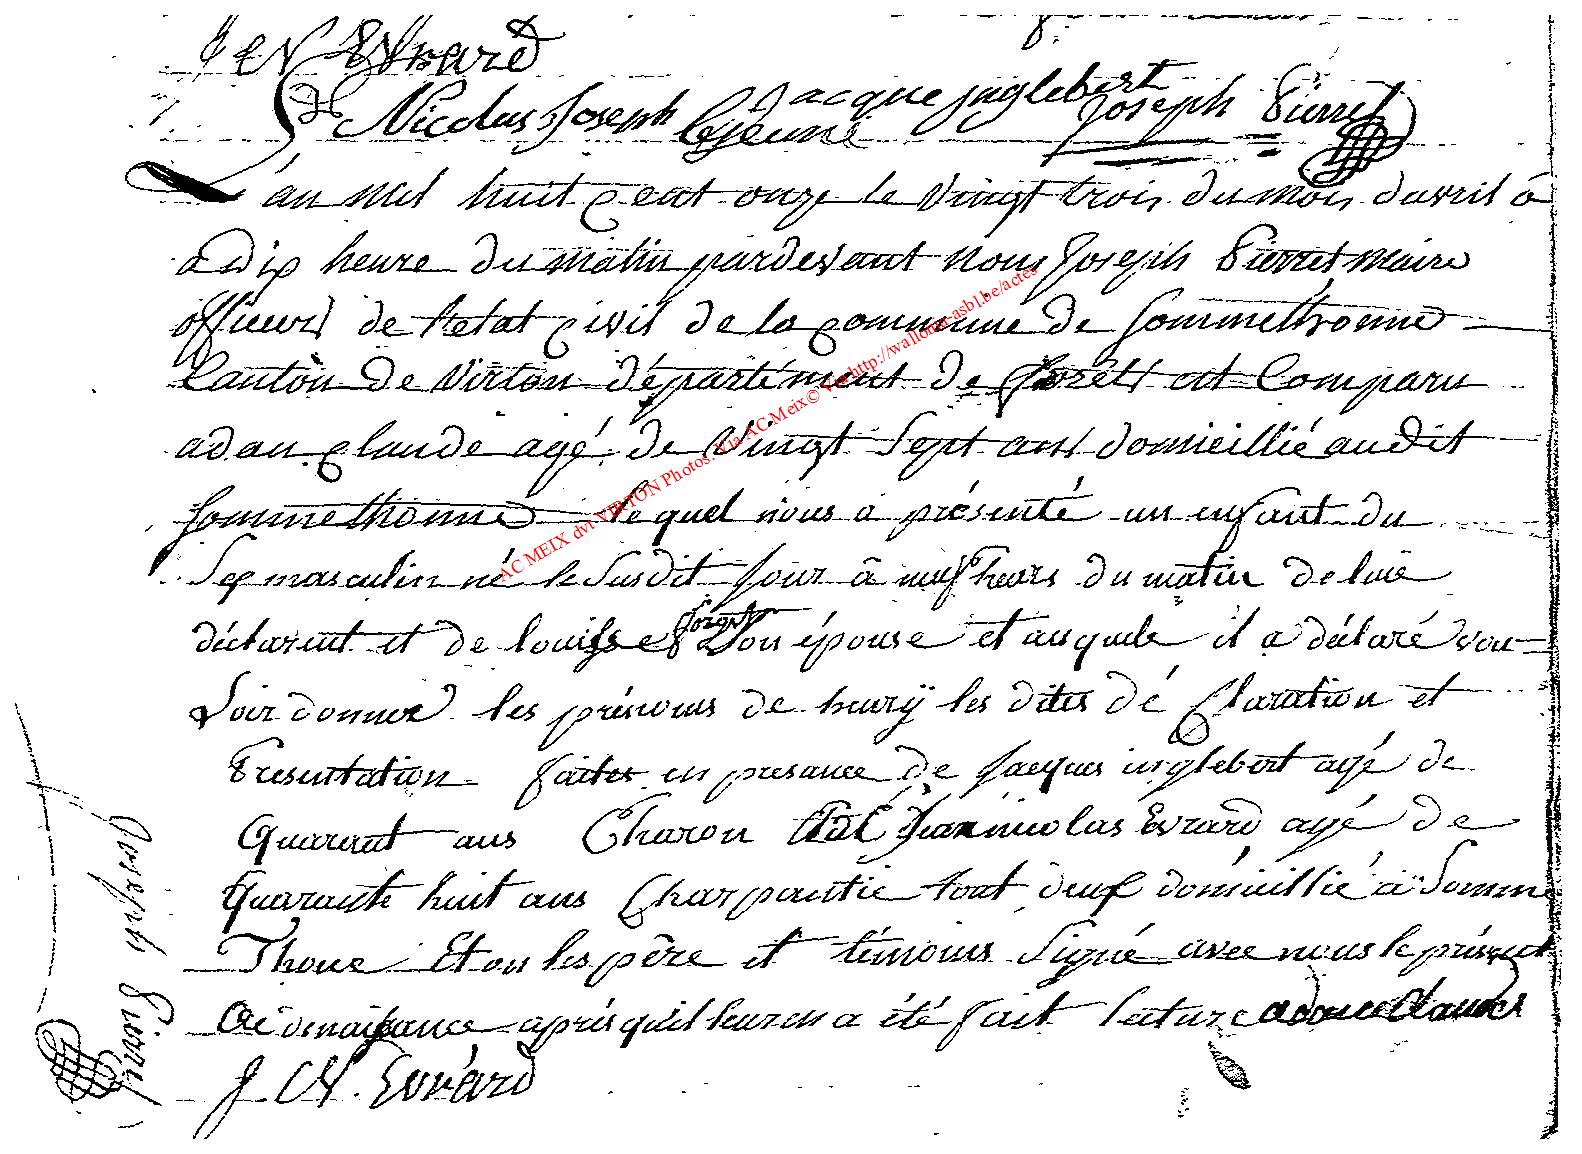 J N Evrard
Jacque jnglebert
Nicolas Joseph Lejeune Joseph Pierret
L'an mil huit cent onze le vingt trois du mois d'avril à
a dix heure du matin pardevant nous Joseph Pierret maire
officier de l'etat civil de la commune de Sommethonne
Canton de Virton département de forêts est Comparu
adan claude agé de vingt Sept ans domicillié audit
Sommethonne lequel nous a présenté un enfant du
Sex masculin né le Susdit jour à neuf heurs du matin de luie
déclarent et de louise Son épouse et auquele il a déclaré vou
Loir donner les prénoms de henrÿ les dites dé Claration et
Presentation faites en presance de Jacques inglebert agé de
Quarant ans Charon Jean nicolas Evrard agé de
Quarante huit ans Charpantie tout deux domicillié à Somme
Thone Et on les père et témoins Signé avec nous le présent
acte de naissance après qu'il leur en a été fait lecture adan Claude
J N Evrard
Joseph Pierret
AC MEIX dvt VIRTON Photos. Via AC Meix© Via http://wallonia-asbl.be/actes